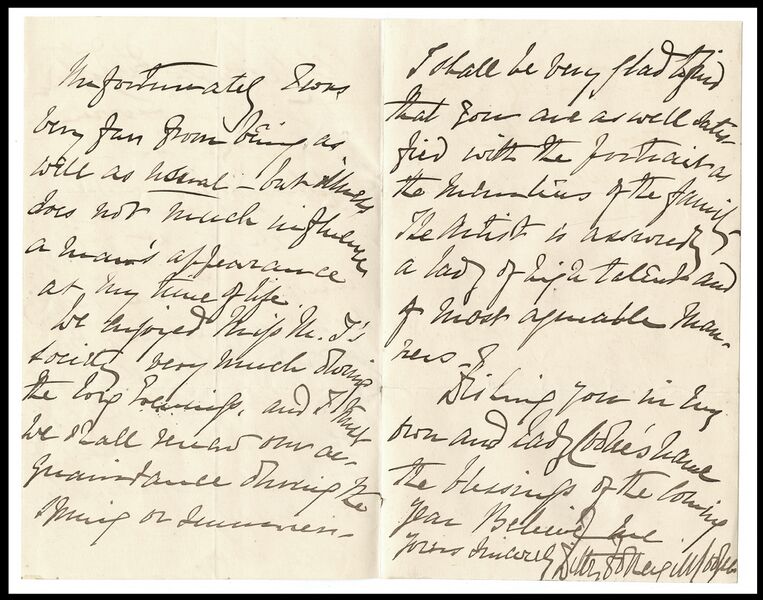 Unfortunately I was
very far from being as
well as usual - but illness
does not much influence
a man's appearance
at my time of life.
We enjoyed Miss M. T's
society very much during
the long Evenings, and I trust
we shall renew our ac-
quaintance during the
spring or summer.-
I shall be very glad to find
that you are as well satis-
fied with the portrait as
the members of the family
The Artist is assuredly
a lady of high talent and
of most agreeable man-
ners.
Wishing you in my
own and Lady Cooke's name
the blessings of the coming
year Believe me
Yours sincerely